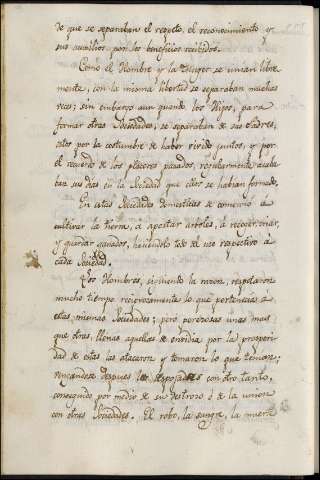 de que se separaban el respeto, el reconocimiento y
sus auxilios por los beneficios recibidos.
Como el Hombre y la Muger se unian libre
mente, con la misma libertad se separaban muchas
veces; sin embargo aun quando los Hijos, para
formar otras Sociedades, se separaban de sus Padres,
estos por la costumbre de haber vivido juntos y por
el recuerdo de los placeres pasados, regularmente acaba
ban sus dias en la Sociedad que ellos se habian formado.
En estas Sociedades domesticas se comenzó á
cultivar la tierra, á apostar arboles, á recoger, criar,
y guardar ganados, haciendolo todo del uso respectivo á
cada Sociedad.
Los Hombres, siguiendo la razon, respetaron
mucho tiempo reciprocamente lo que pertenecia á
estas mismas Sociedades; pero poderosas unas mas
que otras, llenas aquellas de envidia por la prosperi
dad de estas las atacaron y tomaron lo que tenian;
vengandose despues los despojados con otro tanto,
conseguido por medio de su destrozo ó de la union
con otras Sociedades. El robo, la sangre, la muerte